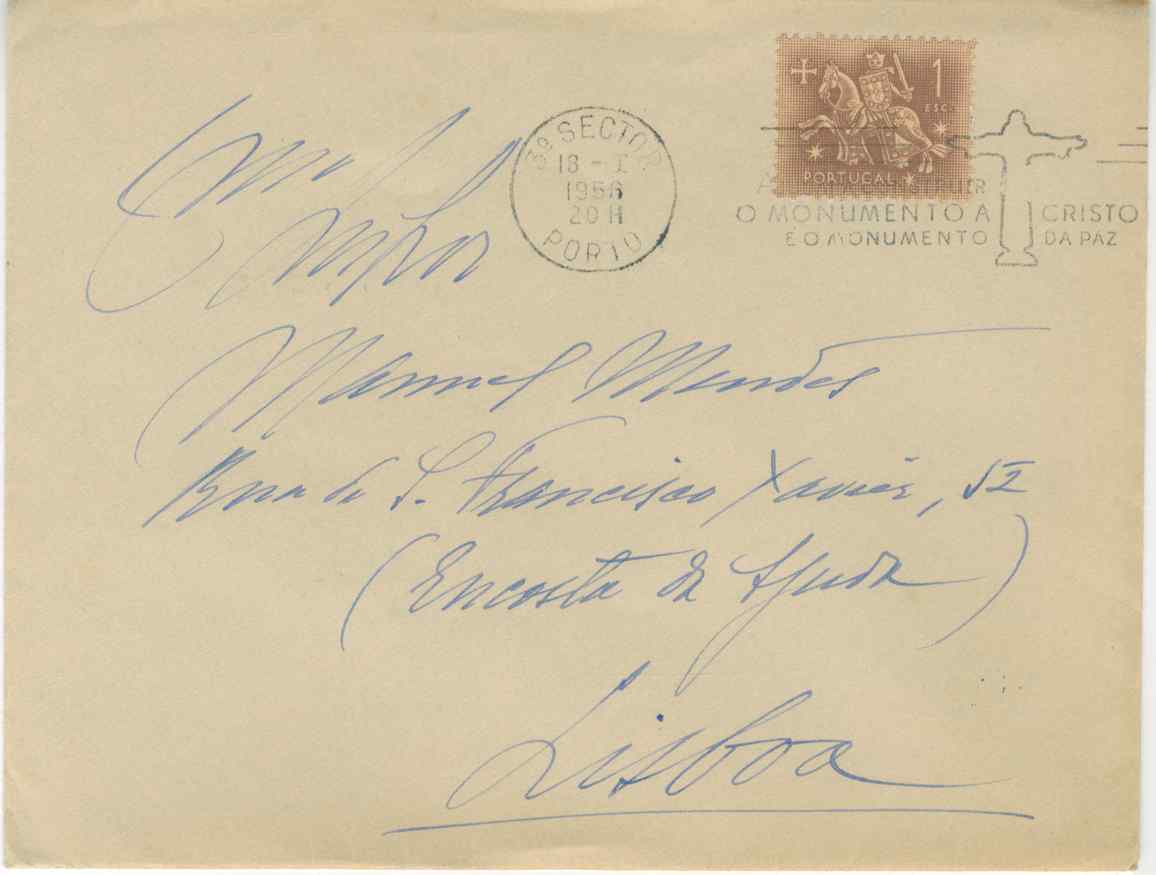 3º SECTOR
18 - I
1956
20 H
PORTO
1
ESC.
PORTUGAL
O MONUMENTO A CRISTO
É O MONUMENTO DA PAZ
Manuel Mendes
Rua de S. Francisco Xavier, 52
(Encosta da Ajuda)
Lisboa